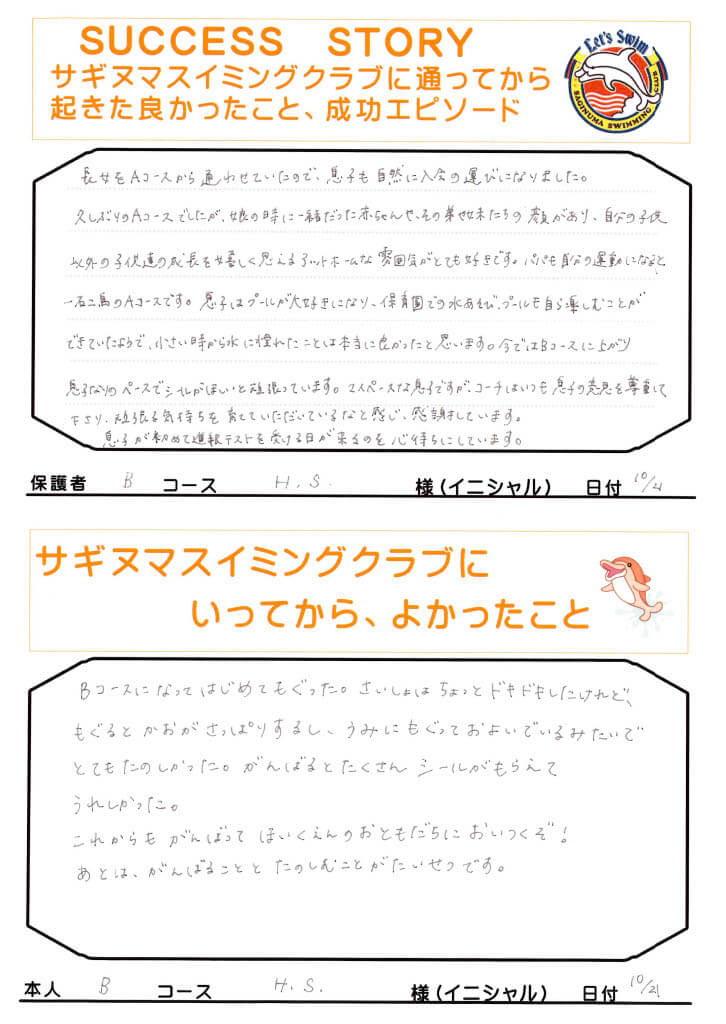 SUCCESS STORY
サギヌマスイミングクラブに通ってから
起きた良かったこと、成功エピソード
Let's Swim
SAGINUMA SWIMMING CLUB
長女をAコースから通わせていたので、息子も自然に入会の運びになりました。
久しぶりのAコースでしたが、娘の時に一緒だった赤ちゃんや、その弟や妹たちの顔があり、自分の子供
以外の子供達の成長を嬉しく思えるアットホームな雰囲気がとても好きです。パパも自分の運動になると、
一石二鳥のAコースです。息子はプールが大好きになり、保育園での水あそび、プールも自ら楽しむことが
できていたようで、小さい時から水に慣れたことは本当に良かったと思います。今ではBコースに上がり
息子なりのペースでシールがほしいと頑張っています。マイペースな息子ですが、コーチはいつも息子の意思を尊重して
下さり、頑張る気持ちを育てていただいているなと感じ、感謝しています。
息子が初めて進級テストを受ける日が来るのを心待ちにしています。
保護者 B コース H.S. 様(イニシャル) 日付 10/4
サギヌマスイミングクラブに
いってから、よかったこと
Bコースになってはじめてもぐった。さいしょはちょっとドキドキしたけれど、
もぐるとかおがさっぱりするし、うみにもぐっておよいでいるみたいで
とてもたのしかった。がんばるとたくさんシールがもらえて
うれしかった。
これからもがんばってほいくえんのおともだちにおいつくぞ!
あとは、がんばることとたのしむことがたいせつです。
本人 B コース H.S. 様(イニシャル) 日付 10/21